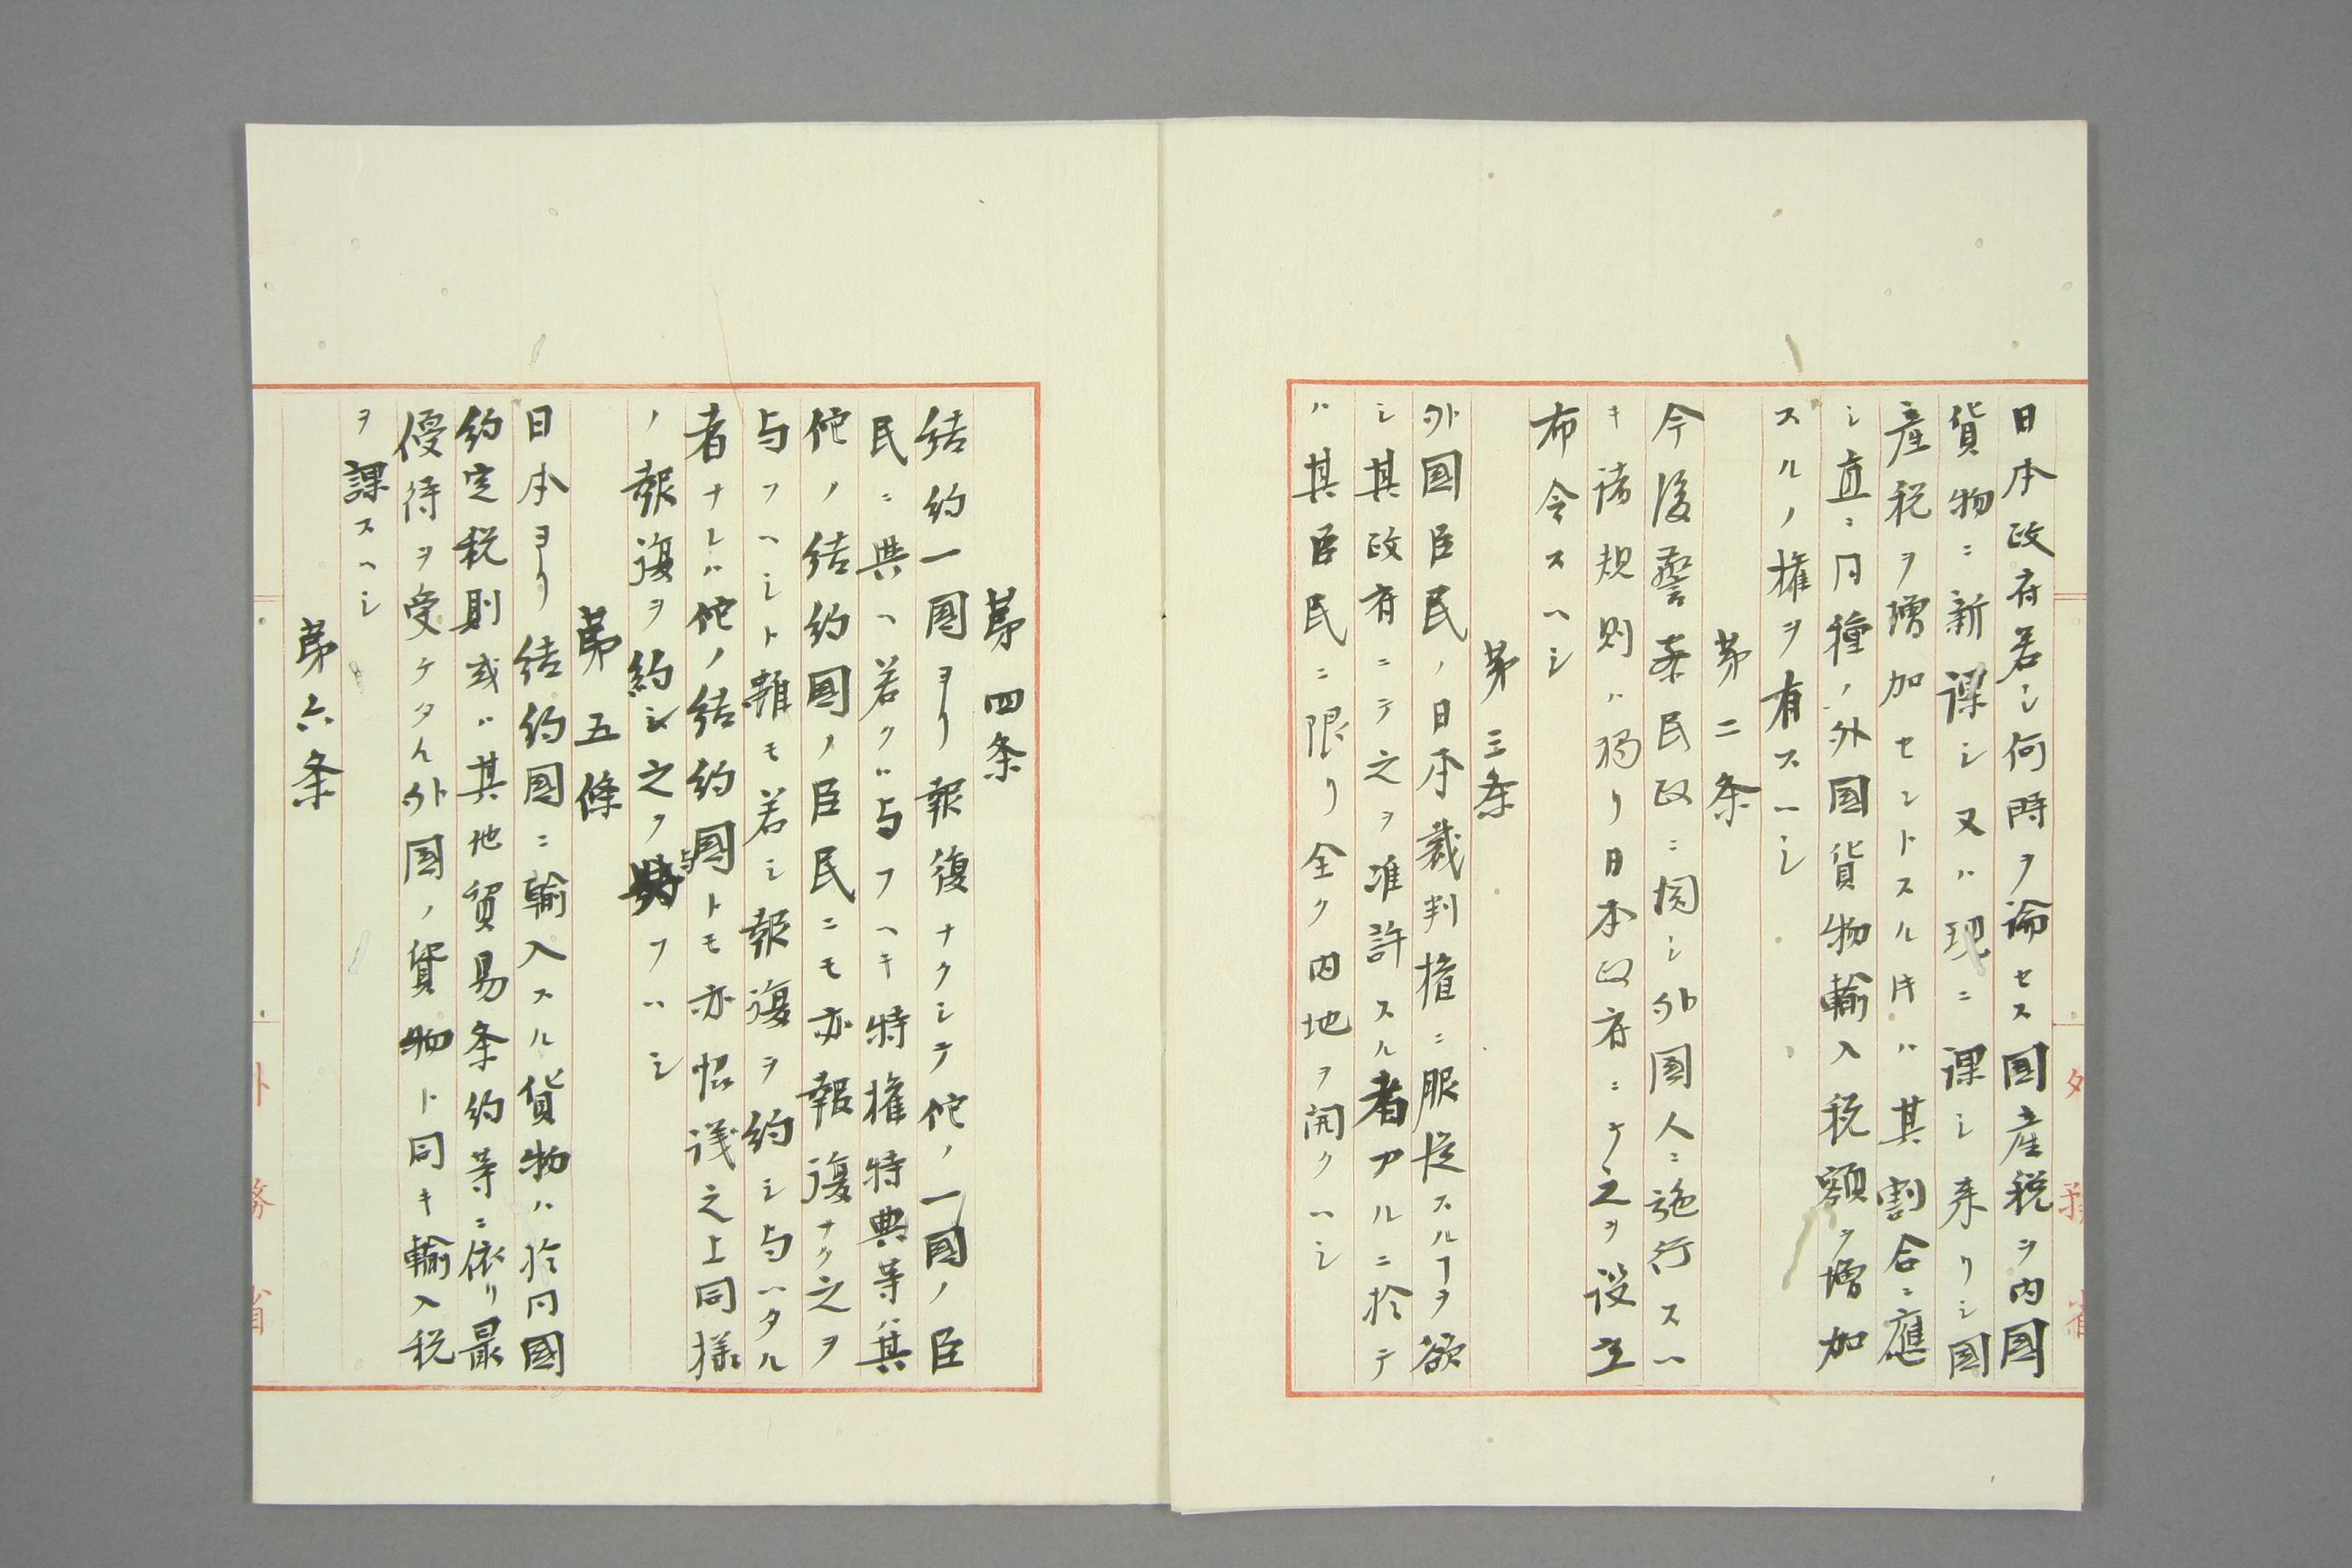 日本政府若シ何時ヲ論セス國産税ヲ内國
貨物ニ新課シ又ハ現ニ課シ来リシ國
産税ヲ増加セントスル𪜈ハ其割合ニ應
シ直ニ同種ノ外國貨物輸入税額ヲ増加
スルノ權ヲ有スヘシ
第二条
今後警察民政ニ関シ外國人ニ施行スヘ
キ諸規則ハ獨リ日本政府ニテ之ヲ設立
布令スヘシ
第三条
外國臣民ノ日本裁判權ニ服従スルヿヲ欲
シ其政府ニテ之ヲ准許スル者アルニ於テ
ハ其臣民ニ限リ全ク内地ヲ開クヘシ
第四条
結約一國ヨリ報復ナクシテ佗ノ一國ノ臣
民ニ與ヘ若クハ与フヘキ特權特典等ハ其
佗ノ結約國ノ臣民ニモ亦報復ナク之ヲ
与フヘシト雖モ若シ報復ヲ約シ与ヘタル
者ナレハ佗ノ結約國トモ亦協議之上同様
ノ報復ヲ約シ之ヲ与フヘシ
第五條
日本ヨリ結約國ニ輸入スル貨物ハ於同國
約定税則或ハ其他貿易条約等ニ依リ最
優待ヲ受ケタル外國ノ貨物ト同キ輸入税
ヲ課スヘシ
第六条
外務省
外務省